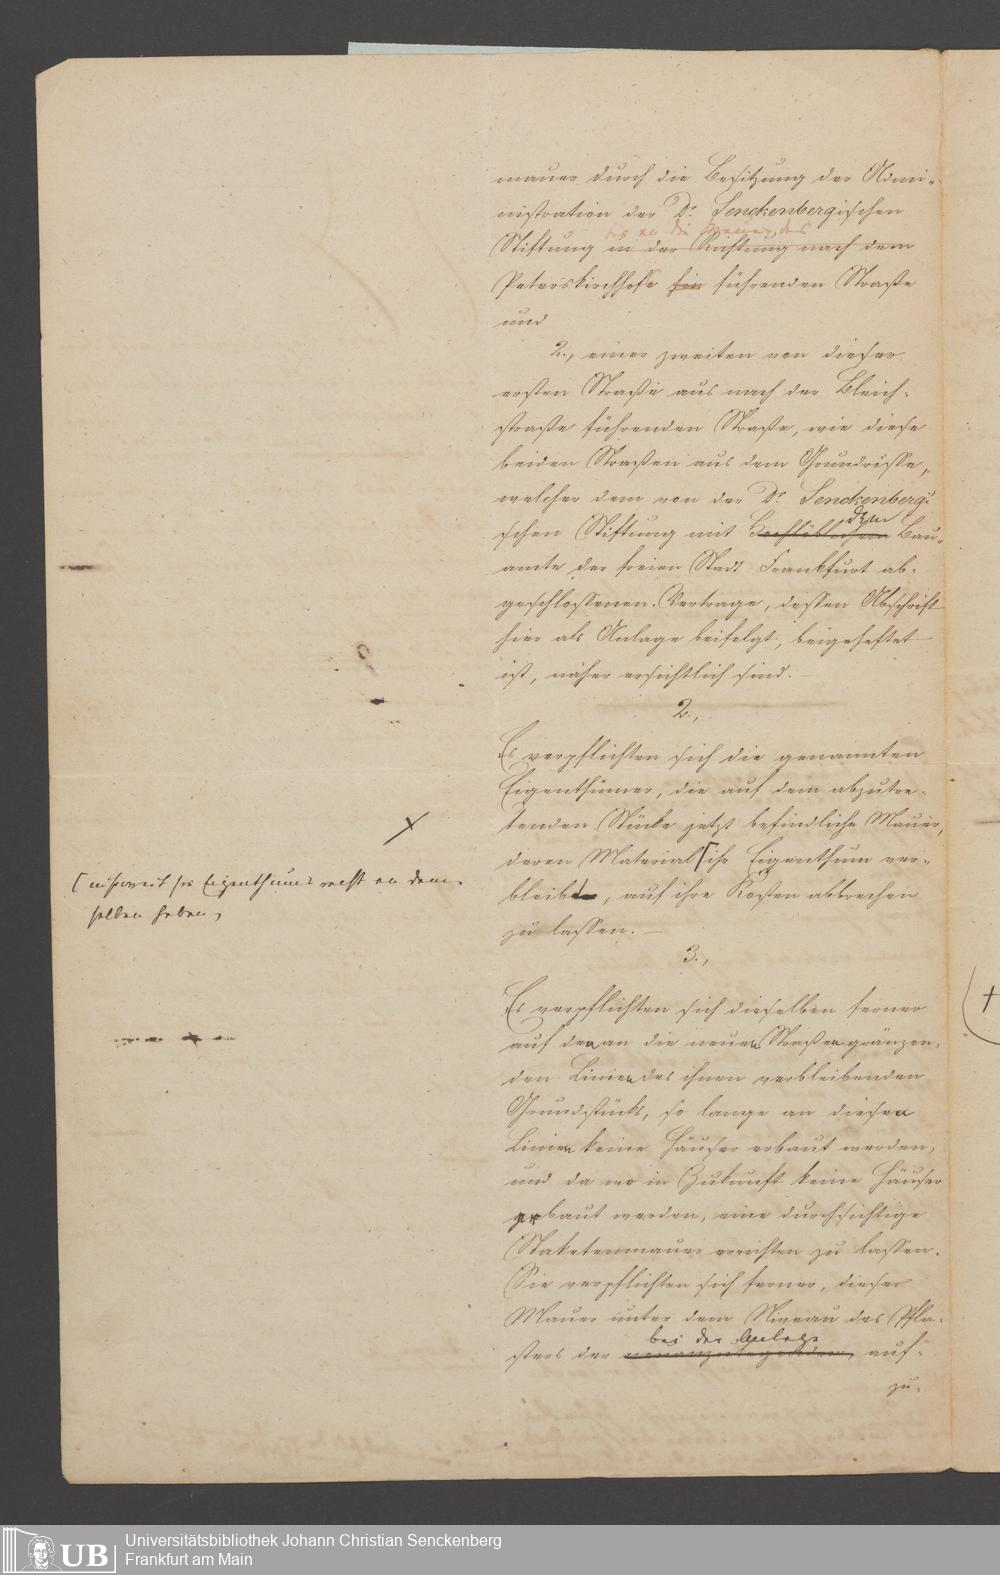 mauer durch die Besitzung der Admi-
nistration der Dr Senckenbergischen
bis an die Mauer des
Stiftung in der Richtung nach dem
Peterskirchhofe hin führenden Straße
und
2., einer zweiten von dieser
ersten Straße aus nach der Bleich-
straße führenden Straße, wie diese
beiden Straßen aus dem Grundrisse,
welcher dem von der Dr Senckenbergi-
schen Stiftung mit Hochlöblichem dem Bau-
amte der freien Stadt Frankfurt ab-
geschlossenen Vertrage, dessen Abschrift
hier als Anlage beifolgt, beigeheftet
ist, näher ersichtlich sind.
2.,
Es verpflichten sich die genannten
Eigenthümer, die auf dem abzutre-
tenden Stücke jetzt befindliche Mauer,
deren Material [ ihr Eigenthum ver-
bleibt, auf ihre Kosten abbrechen
zu lassen.
3.,
Es verpflichten sich dieselben ferner
auf den an die neuen Straßen gränzen-
den Linien des ihnen verbleibenden
Grundstücks, so lange an diesen
Linien keine Häuser erbaut werden,
und da wo in Zukunft keine Häuser
erbaut werden, eine durchsichtige
Staketenmauer errichten zu lassen.
Sie verpflichten sich ferner, dieser
Mauer unter dem Niveau des Pfla-
bei der Anlage
sters der neuanzulegenden, auf-
zu-
x
[ insoweit sie Eigenthumsrecht an dem-
selben haben,
+
UB
Universitätsbibliothek Johann Christian Senckenberg
Frankfurt am Main